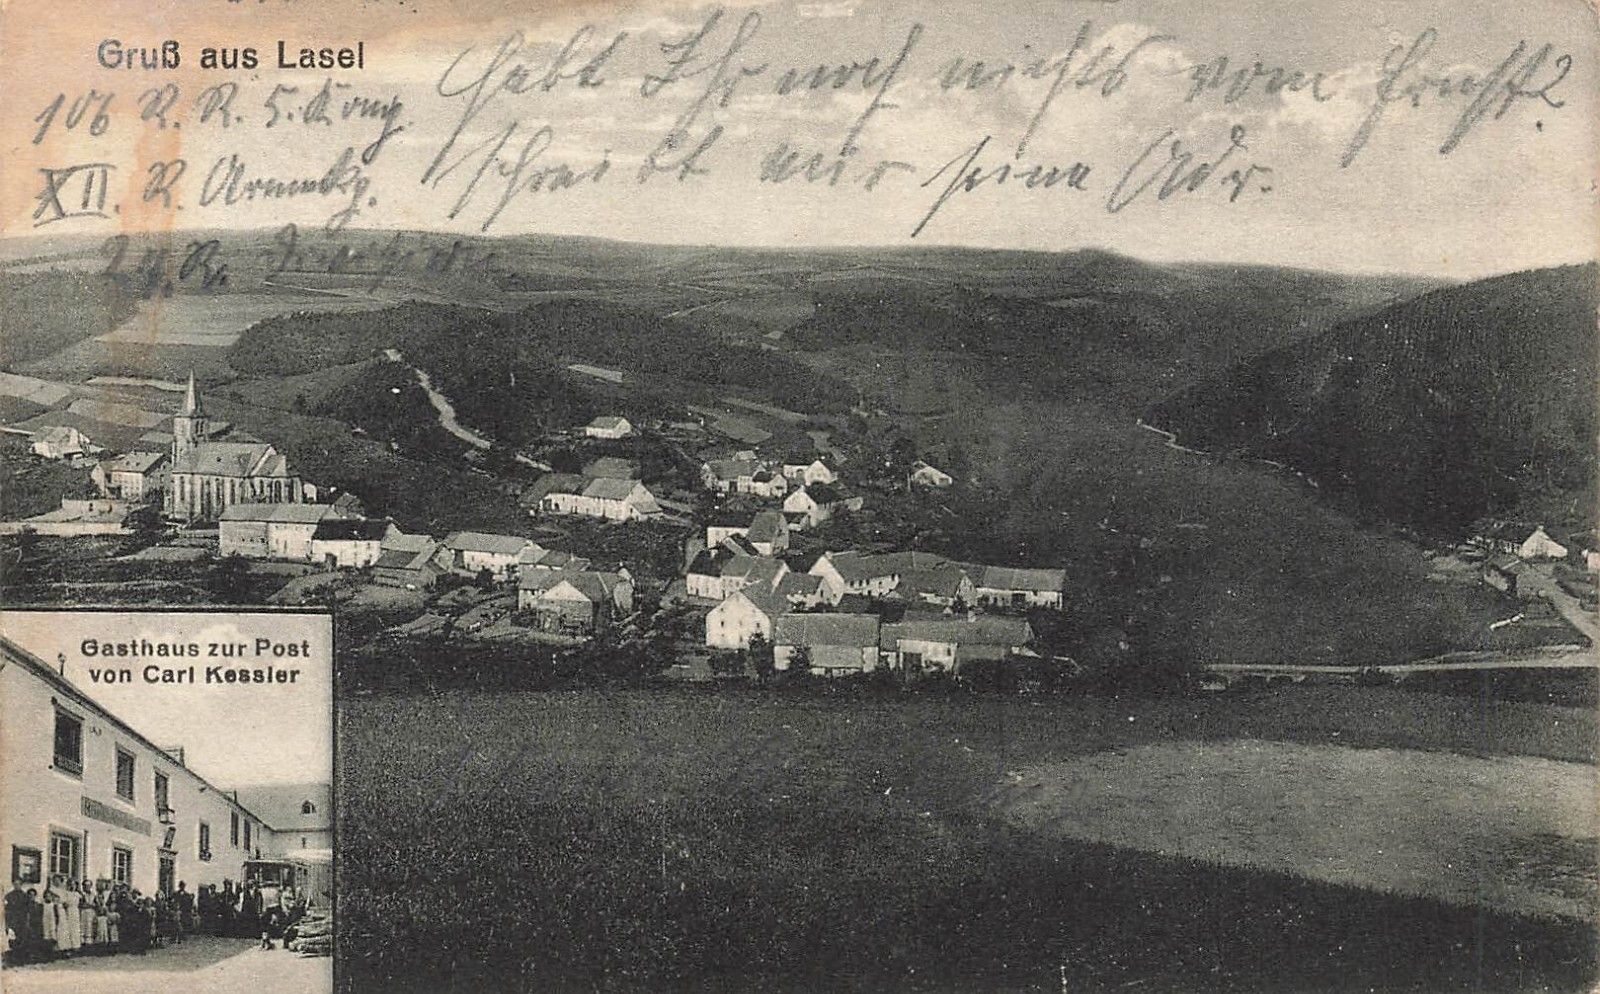 Gruß aus Lasel
Habt Ihr noch nichts vom Ernst?
schreibt mir seine Adr.
106 R. R. 5. Komp.
XII. R. Armeekp.
24. R. Division.
Gasthaus zur Post
von Carl Kessler